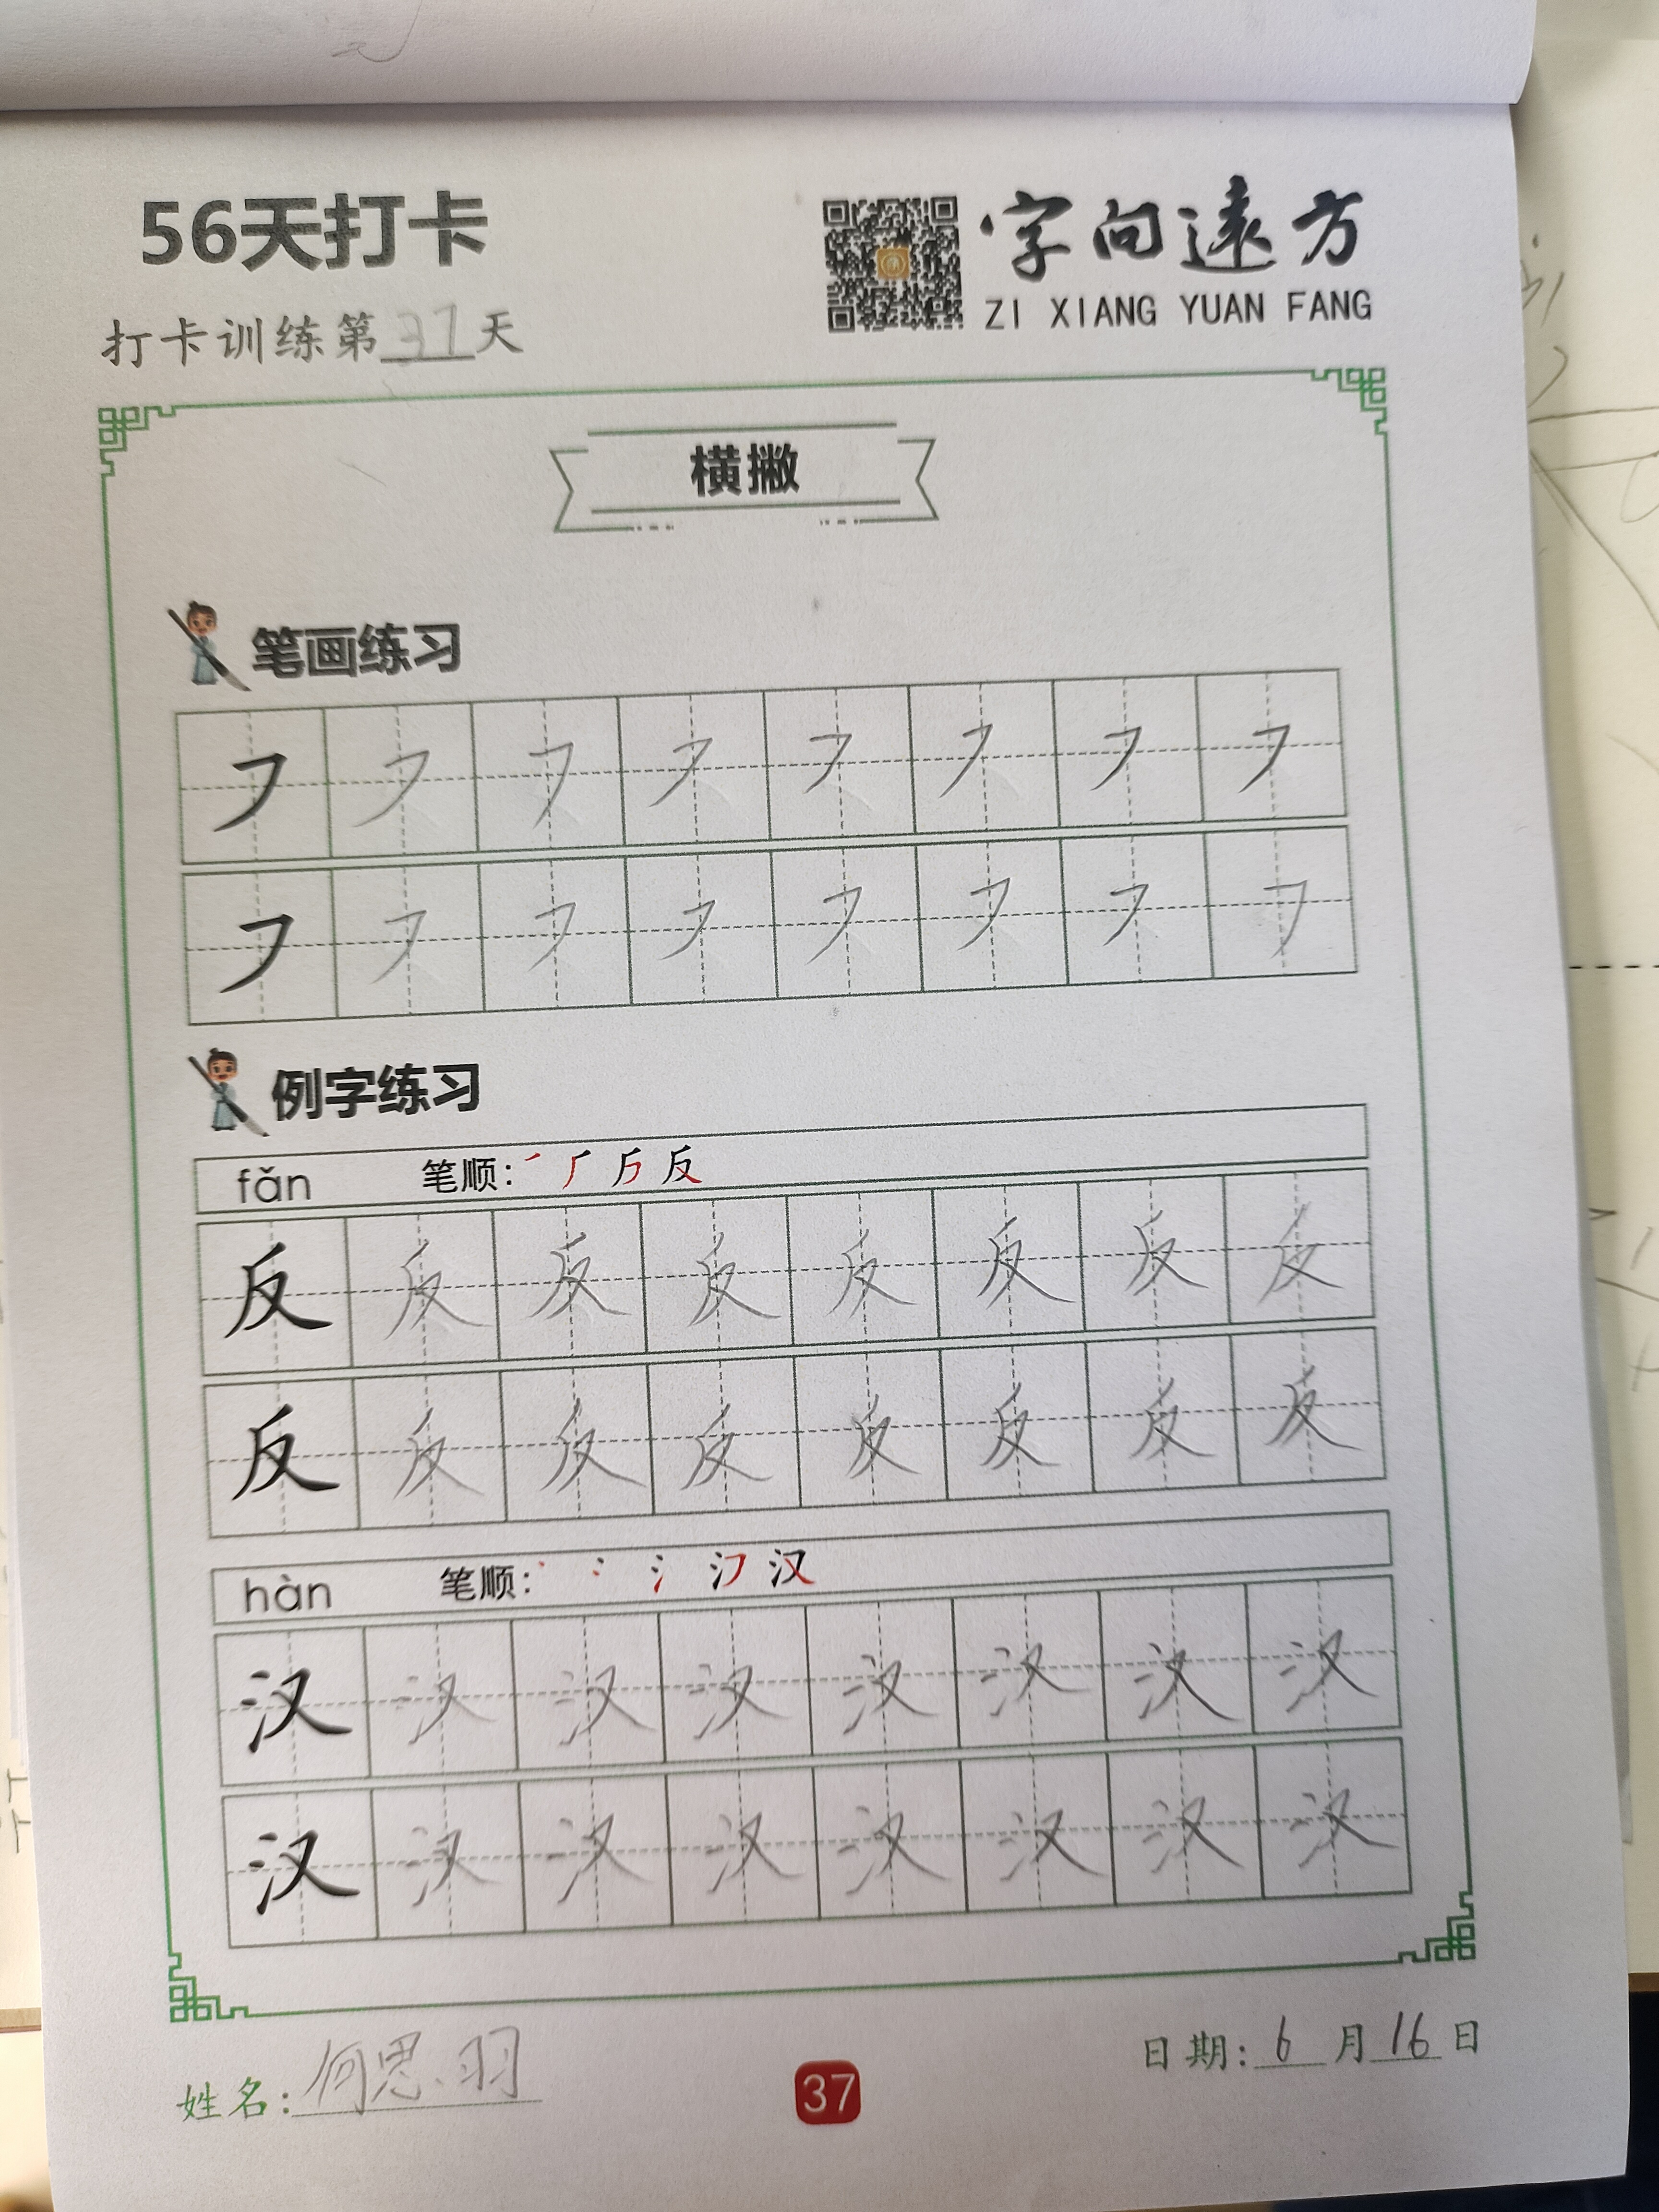 56天打卡
字向遠方
ZI XIANG YUAN FANG
打卡训练第37天
横撇
笔画练习
㇇ ㇇ ㇇ ㇇ ㇇ ㇇ ㇇ ㇇
㇇ ㇇ ㇇ ㇇ ㇇ ㇇ ㇇ ㇇
例字练习
fǎn 笔顺: 反
反 反 反 反 反 反 反 反
反 反 反 反 反 反 反 反
hàn 笔顺: 汉
汉 汉 汉 汉 汉 汉 汉 汉
汉 汉 汉 汉 汉 汉 汉 汉
姓名: 何思羽
37
日期: 6 月 16 日